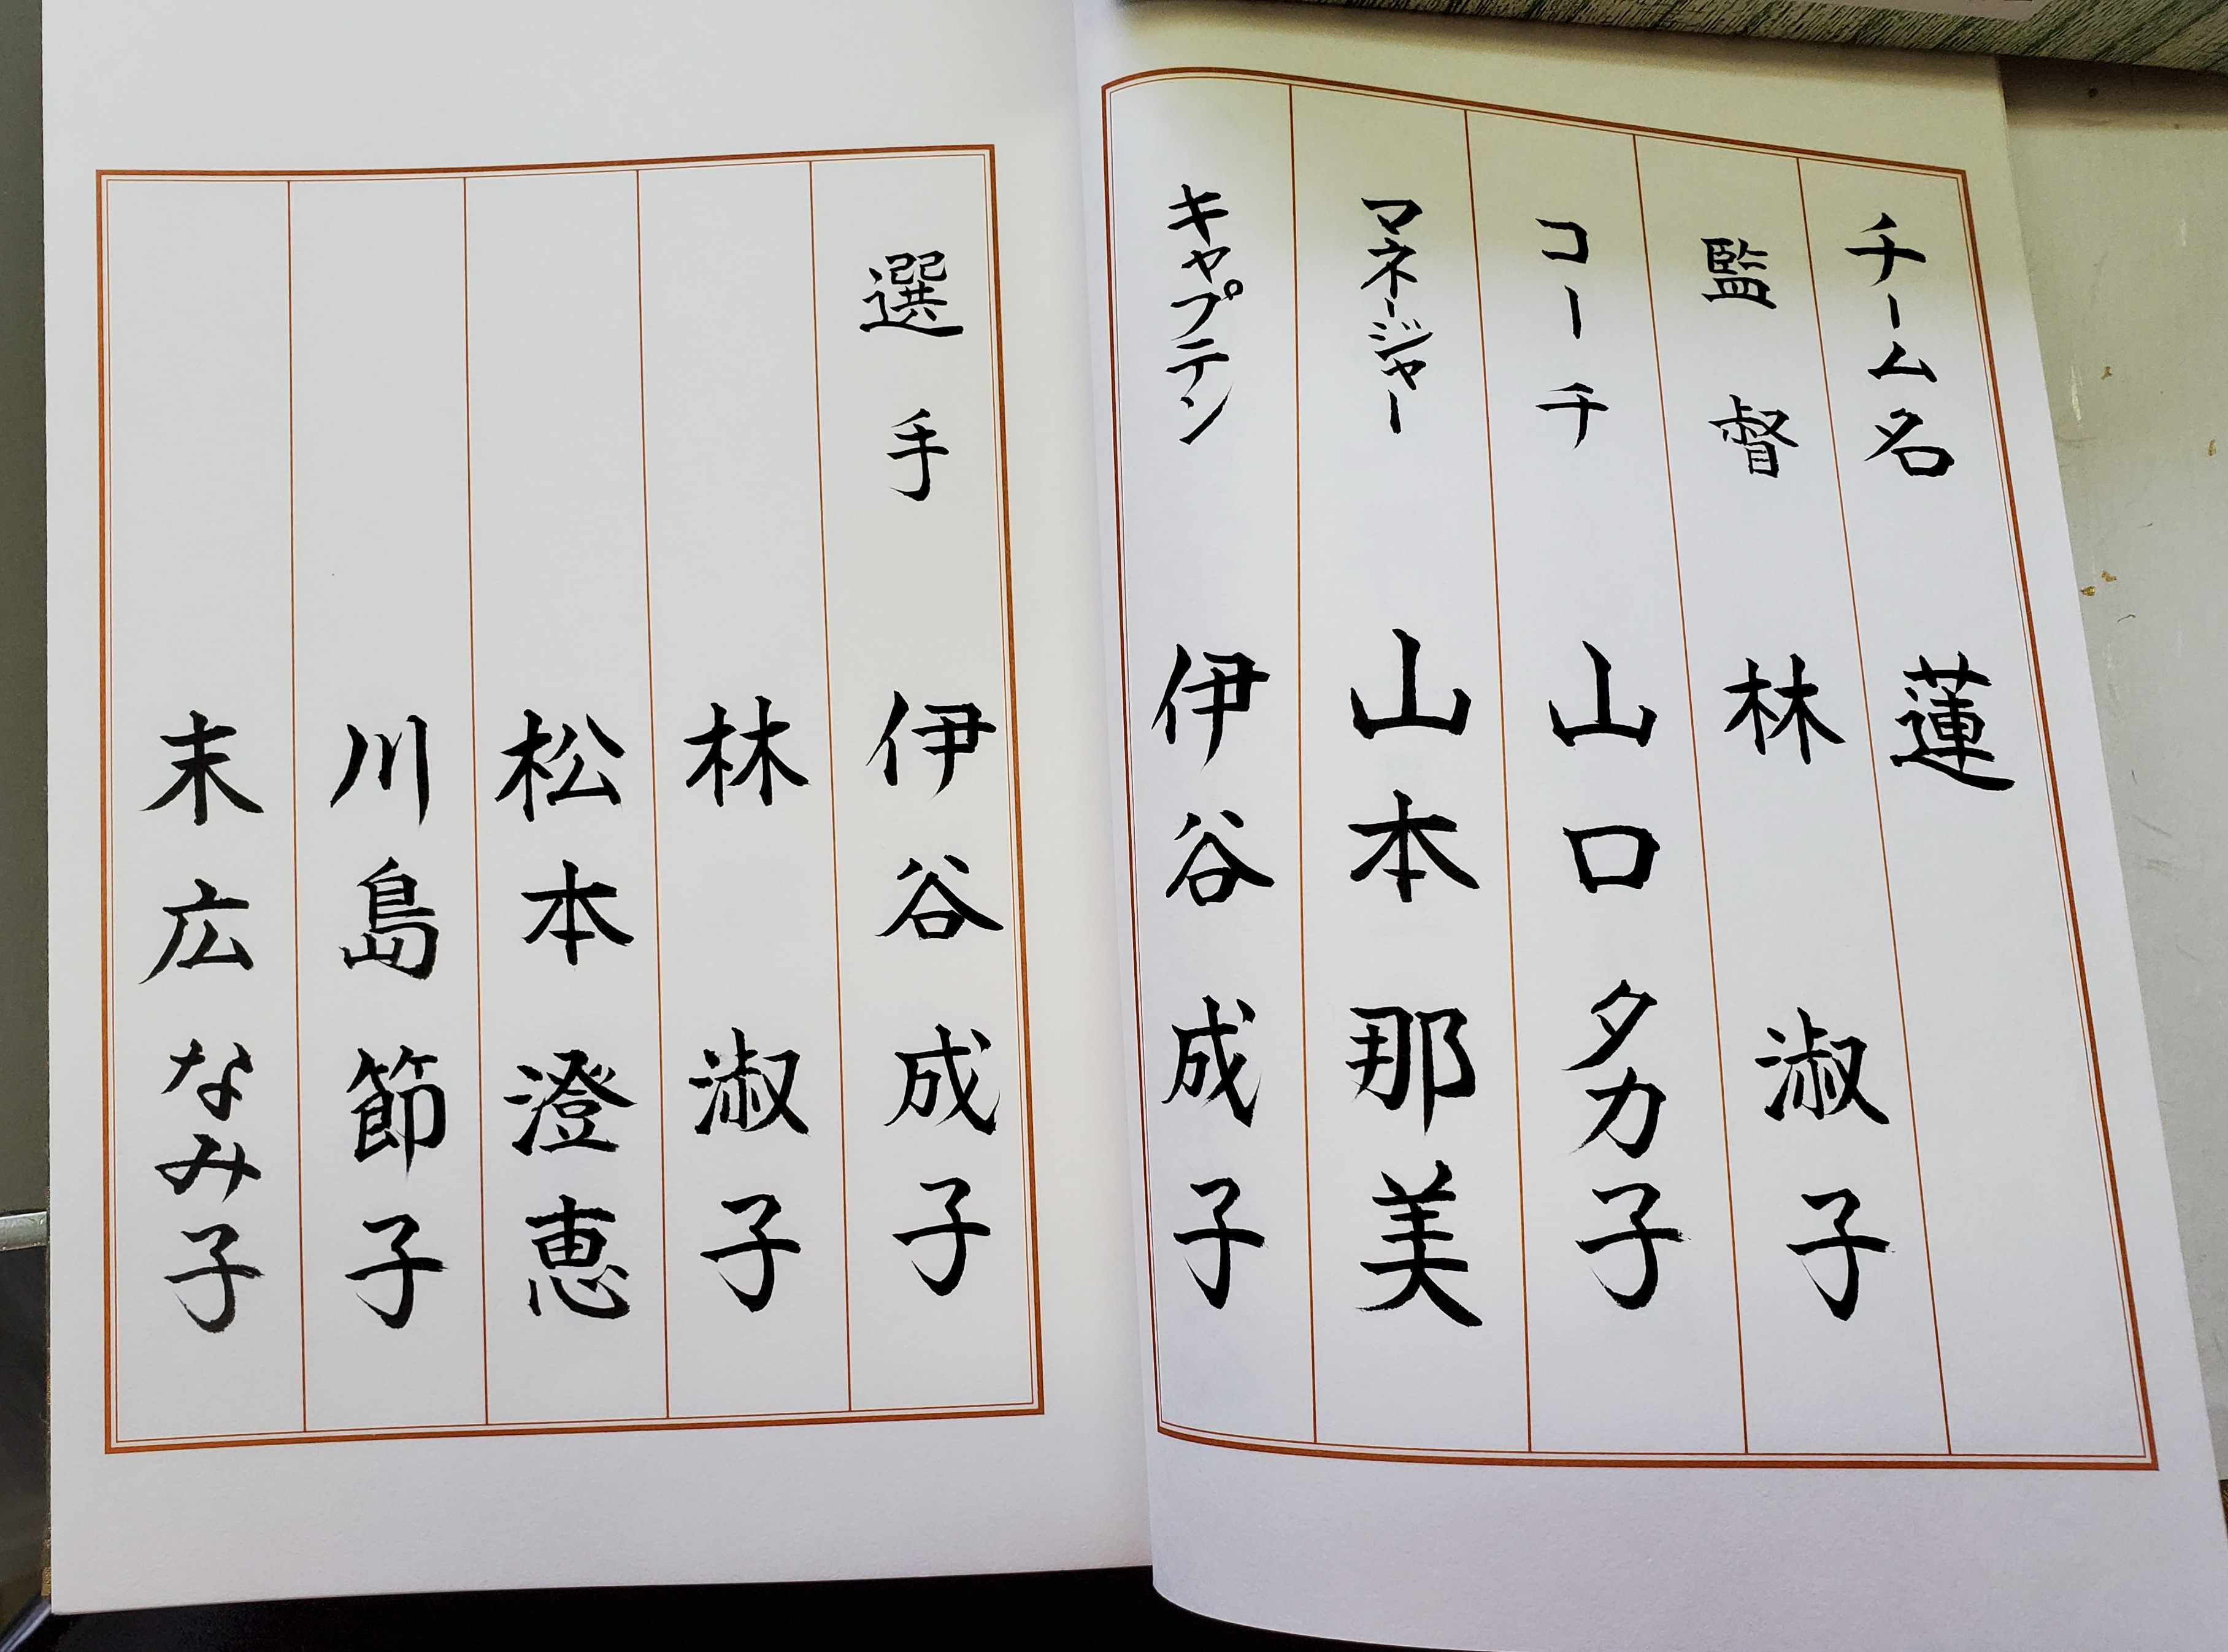 チーム名 蓮
監督 林 淑子
コーチ 山口タカ子
マネージャー 山本那美
キャプテン 伊谷成子
選手 伊谷成子
林 淑子
松本澄恵
川島節子
末広なみ子